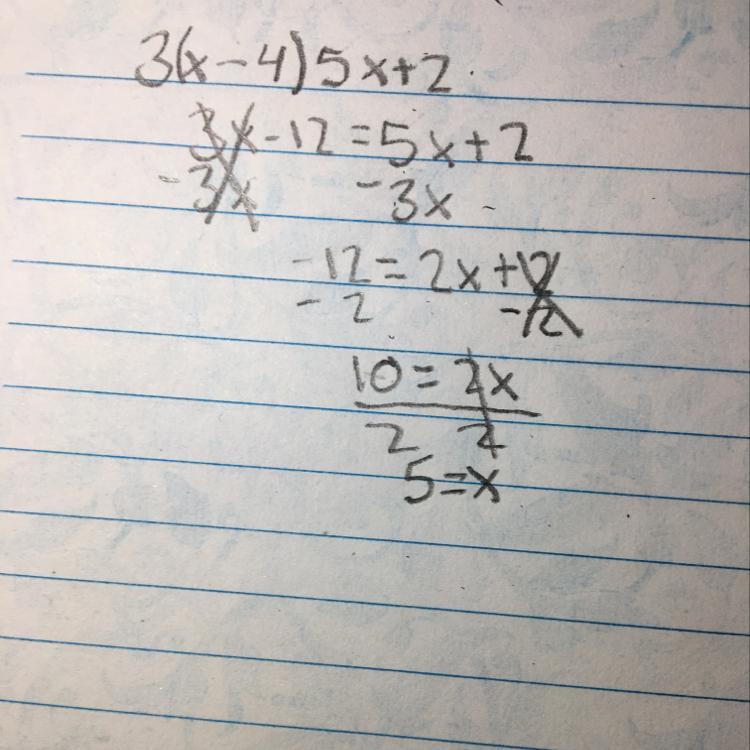 3(x-4)5x+2
3x-12=5x+2
-3x -3x
-12=2x+2
-2 -2
10=2x
2 2
5=x